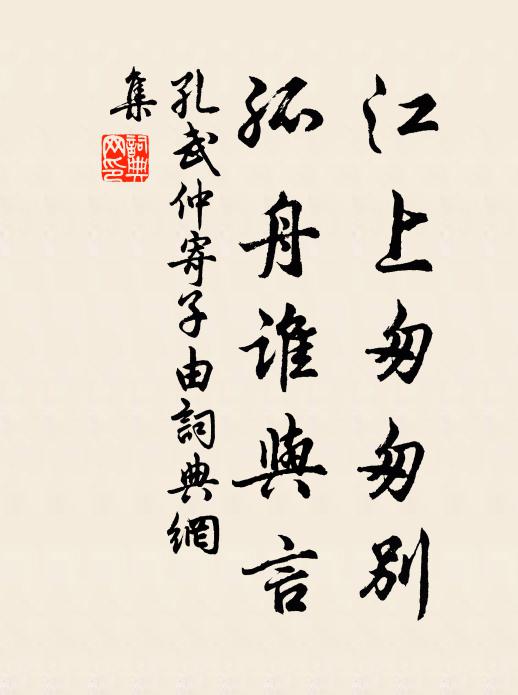 江上匆匆別
孤舟誰與言
孔武仲寄子由詞典網
集
詞典
网印